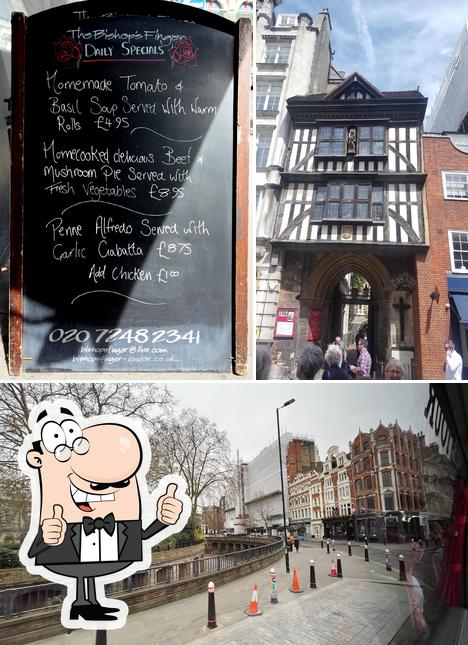 The Bishop's Finger
DAILY SPECIALS
Homemade Tomato &
Basil Soup Served with Warm
Rolls £4.95
Homecooked delicious Beef &
Mushroom Pie Served with
Fresh Vegetables £8.95
Penne Alfredo Served with
Garlic Ciabatta £8.75
Add Chicken £1.00
020 7248 2341
bishopsfinger@live.com
bishopsfinger-london.co.uk